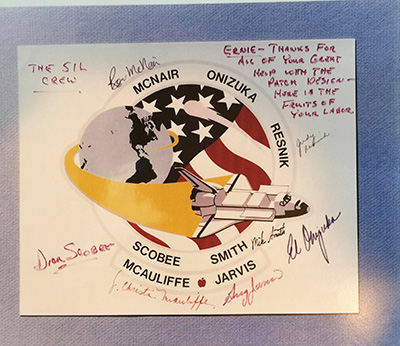 THE 51L
CREW
Ron McNair
ERNIE- THANKS FOR
ALL OF YOUR GREAT
HELP WITH THE
PATCH DESIGN-
HERE IS THE
FRUITS OF
YOUR LABOR
MCNAIR ONIZUKA
RESNIK
Judy Resnik
SCOBEE SMITH
MCAULIFFE JARVIS
Dick Scobee
Mike Smith
El Onizuka
S. Christa McAuliffe
Greg Jarvis